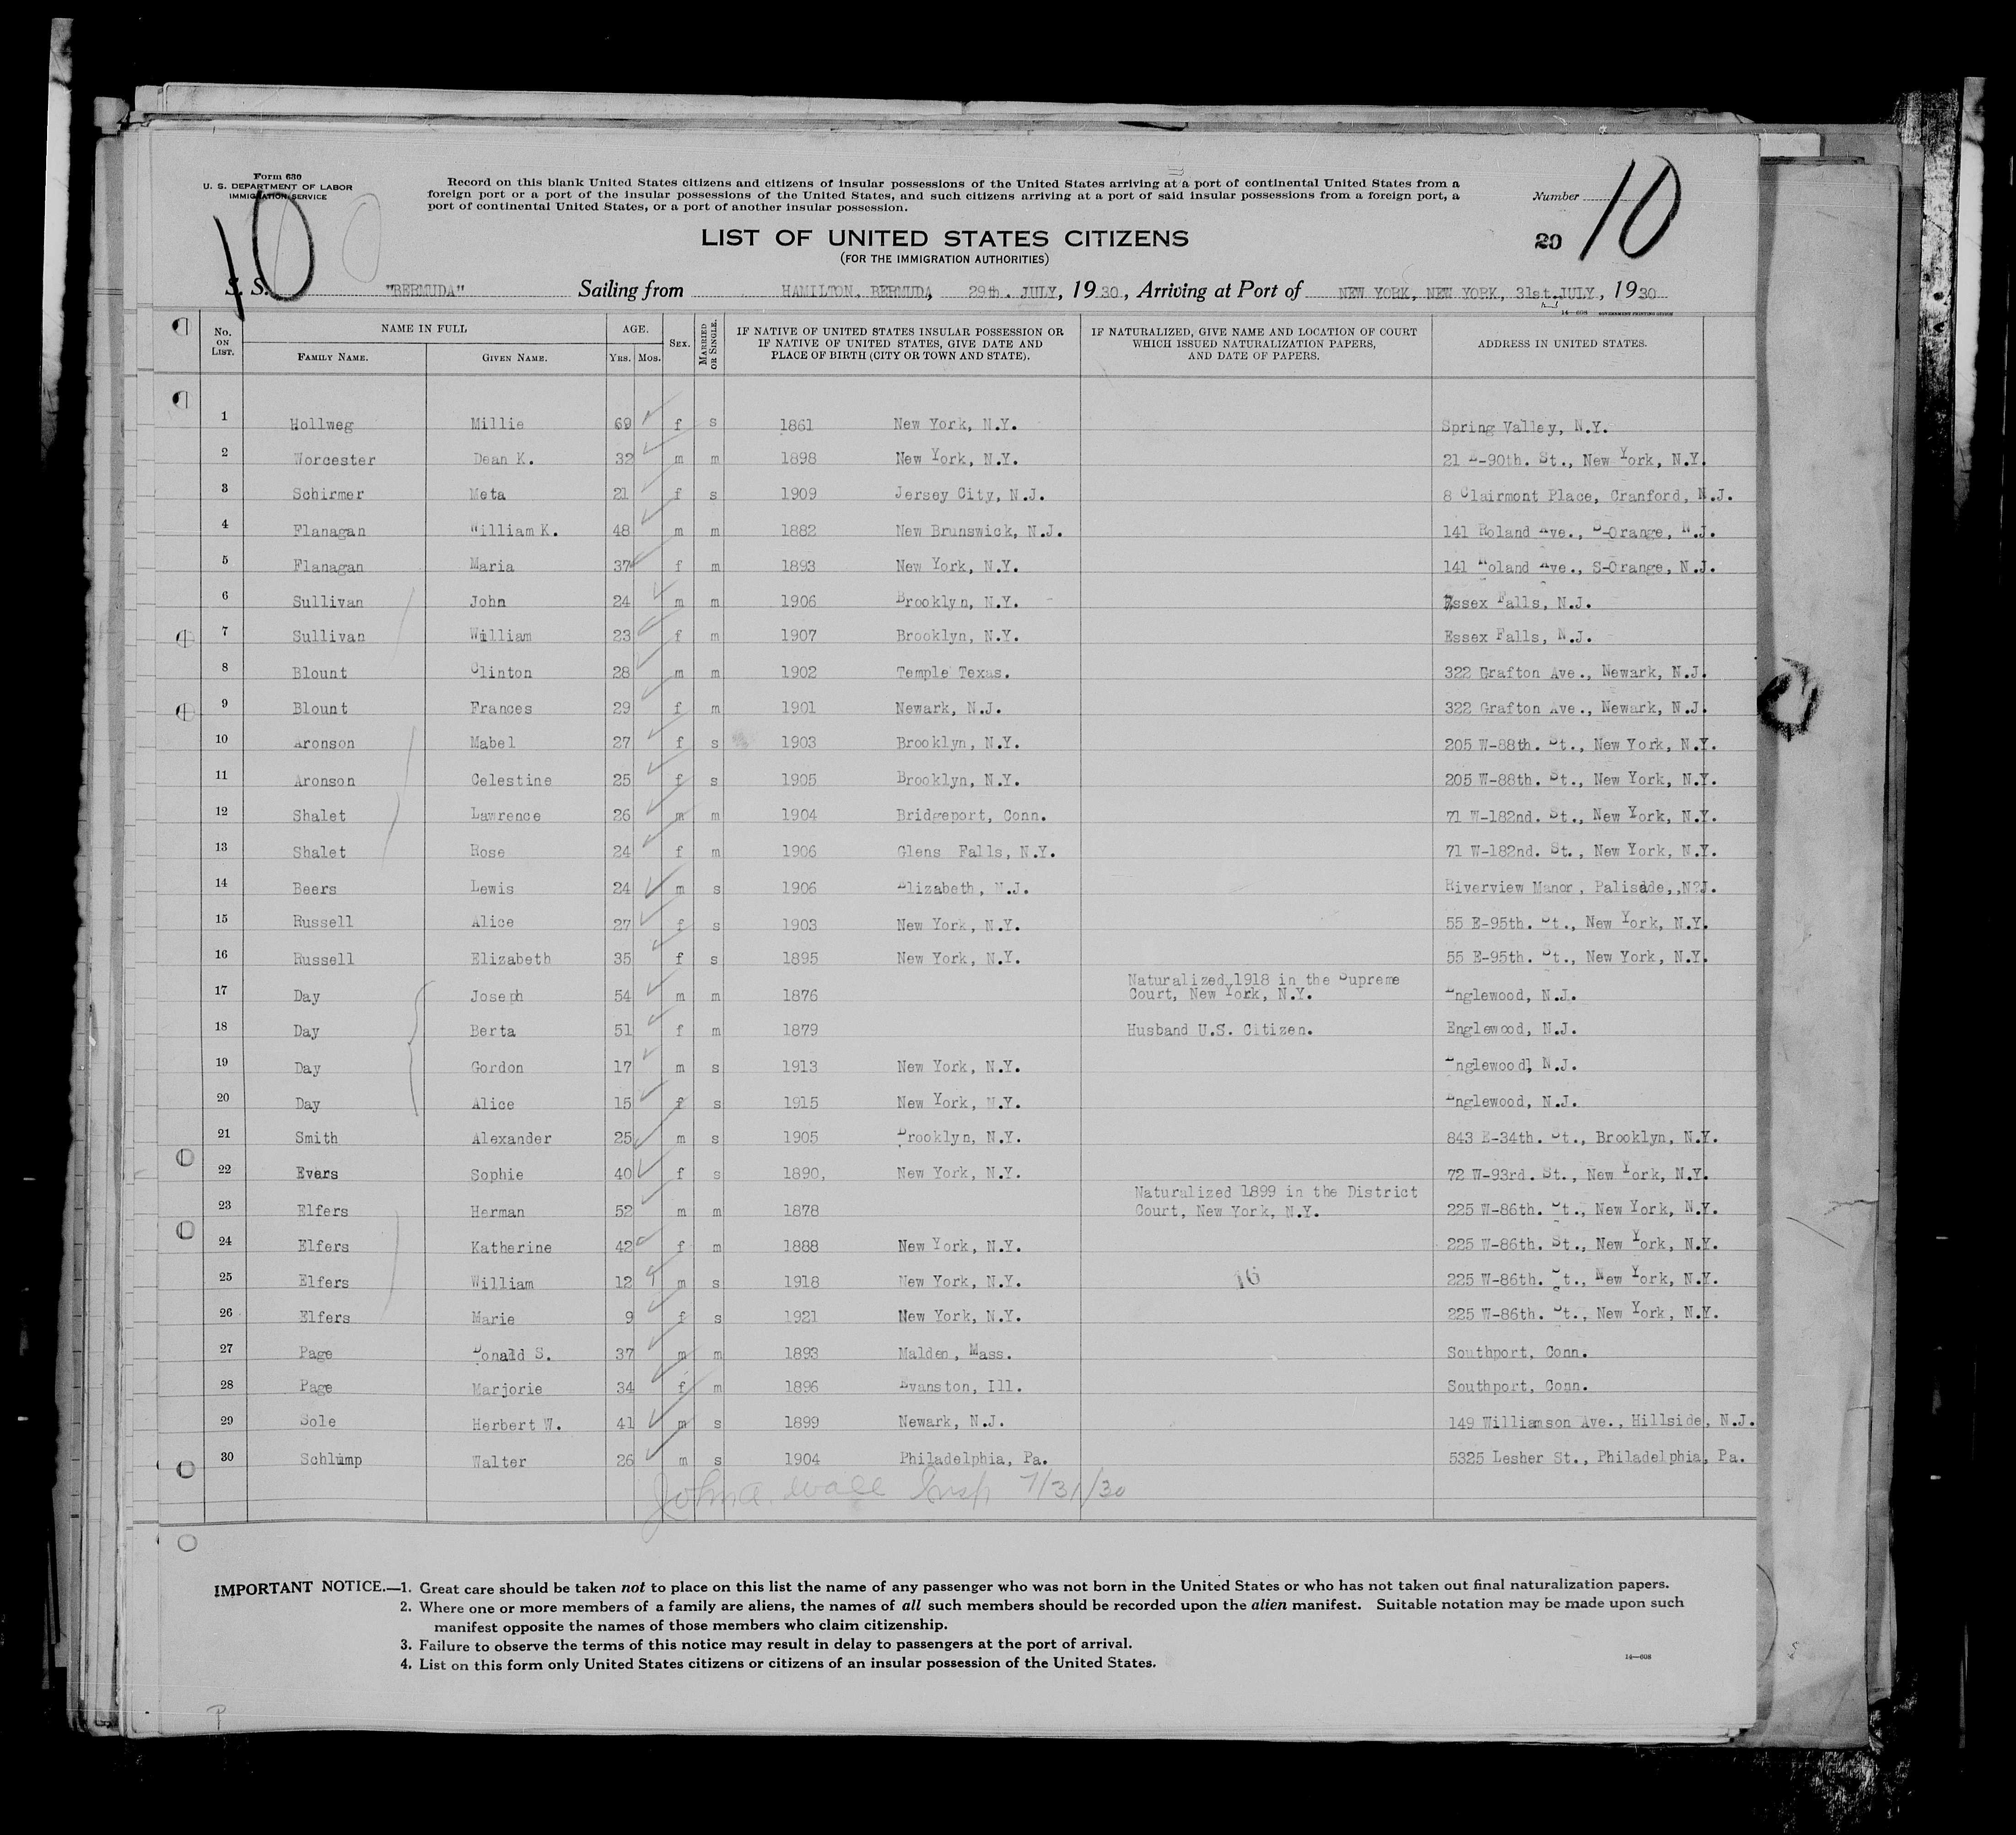 Form 630
U. S. DEPARTMENT OF LABOR
IMMIGRATION SERVICE
10
Record on this blank United States citizens and citizens of insular possessions of the United States arriving at a port of continental United States from a
foreign port or a port of the insular possessions of the United States, and such citizens arriving at a port of said insular possessions from a foreign port, a
port of continental United States, or a port of another insular possession.
Number 10
20
LIST OF UNITED STATES CITIZENS
(FOR THE IMMIGRATION AUTHORITIES)
S. S. "BERMUDA" Sailing from HAMILTON, BERMUDA, 29th. JULY, 1930, Arriving at Port of NEW YORK, NEW YORK, 31st. JULY, 1930
14—608 GOVERNMENT PRINTING OFFICE
No. ON LIST. NAME IN FULL FAMILY NAME. GIVEN NAME. AGE. YRS. MOS. SEX. MARRIED OR SINGLE. IF NATIVE OF UNITED STATES INSULAR POSSESSION OR IF NATIVE OF UNITED STATES, GIVE DATE AND PLACE OF BIRTH (CITY OR TOWN AND STATE). IF NATURALIZED, GIVE NAME AND LOCATION OF COURT WHICH ISSUED NATURALIZATION PAPERS, AND DATE OF PAPERS. ADDRESS IN UNITED STATES.
1 Hollweg Millie 69 f s 1861 New York, N.Y. Spring Valley, N.Y.
2 Worcester Dean K. 32 m m 1898 New York, N.Y. 21 E-90th. St., New York, N.Y.
3 Schirmer Meta 21 f s 1909 Jersey City, N.J. 8 Clairmont Place, Cranford, N.J.
4 Flanagan William K. 48 m m 1882 New Brunswick, N.J. 141 Roland Ave., S-Orange, N.J.
5 Flanagan Maria 37 f m 1893 New York, N.Y. 141 Roland Ave., S-Orange, N.J.
6 Sullivan John 24 m m 1906 Brooklyn, N.Y. Essex Falls, N.J.
7 Sullivan William 23 f m 1907 Brooklyn, N.Y. Essex Falls, N.J.
8 Blount Clinton 28 m m 1902 Temple Texas. 322 Grafton Ave., Newark, N.J.
9 Blount Frances 29 f m 1901 Newark, N.J. 322 Grafton Ave., Newark, N.J.
10 Aronson Mabel 27 f s 1903 Brooklyn, N.Y. 205 W-88th. St., New York, N.Y.
11 Aronson Celestine 25 f s 1905 Brooklyn, N.Y. 205 W-88th. St., New York, N.Y.
12 Shalet Lawrence 26 m m 1904 Bridgeport, Conn. 71 W-182nd. St., New York, N.Y.
13 Shalet Rose 24 f m 1906 Glens Falls, N.Y. 71 W-182nd. St., New York, N.Y.
14 Beers Lewis 24 m s 1906 Elizabeth, N.J. Riverview Manor, Palisade,,N?J.
15 Russell Alice 27 f s 1903 New York, N.Y. 55 E-95th. St., New York, N.Y.
16 Russell Elizabeth 35 f s 1895 New York, N.Y. 55 E-95th. St., New York, N.Y.
17 Day Joseph 54 m m 1876 Naturalized 1918 in the Supreme Court, New York, N.Y. Englewood, N.J.
18 Day Berta 51 f m 1879 Husband U.S. Citizen. Englewood, N.J.
19 Day Gordon 17 m s 1913 New York, N.Y. Englewood, N.J.
20 Day Alice 15 f s 1915 New York, N.Y. Englewood, N.J.
21 Smith Alexander 25 m s 1905 Brooklyn, N.Y. 843 E-34th. St., Brooklyn, N.Y.
22 Evers Sophie 40 f s 1890, New York, N.Y. 72 W-93rd. St., New York, N.Y.
23 Elfers Herman 52 m m 1878 Naturalized 1899 in the District Court, New York, N.Y. 225 W-86th. St., New York, N.Y.
24 Elfers Katherine 42 f m 1888 New York, N.Y. 225 W-86th. St., New York, N.Y.
25 Elfers William 12 m s 1918 New York, N.Y. 16 225 W-86th. St., New York, N.Y.
26 Elfers Marie 9 f s 1921 New York, N.Y. 225 W-86th. St., New York, N.Y.
27 Page Donald S. 37 m m 1893 Malden, Mass. Southport, Conn.
28 Page Marjorie 34 f m 1896 Evanston, Ill. Southport, Conn.
29 Sole Herbert W. 41 m s 1899 Newark, N.J. 149 Williamson Ave., Hillside, N.J.
30 Schlump Walter 26 m s 1904 Philadelphia, Pa. 5325 Lesher St., Philadelphia, Pa.
John A. Wall Insp 7/31/30
IMPORTANT NOTICE.—1. Great care should be taken not to place on this list the name of any passenger who was not born in the United States or who has not taken out final naturalization papers.
2. Where one or more members of a family are aliens, the names of all such members should be recorded upon the alien manifest. Suitable notation may be made upon such
manifest opposite the names of those members who claim citizenship.
3. Failure to observe the terms of this notice may result in delay to passengers at the port of arrival.
4. List on this form only United States citizens or citizens of an insular possession of the United States.
14—608
P